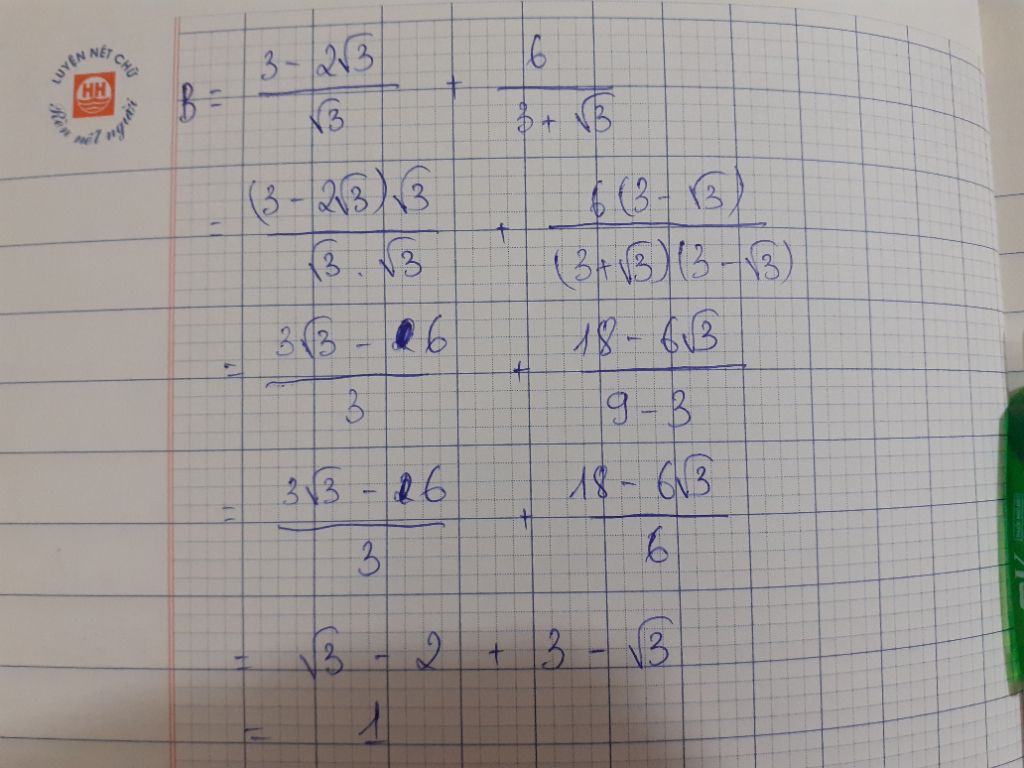 LUYỆN NÉT CHỮ
HH
Rèn nết người
B = (3 - 2√3)/√3 + 6/(3 + √3)
= ((3 - 2√3)√3)/(√3 . √3) + (6(3 - √3))/((3 + √3)(3 - √3))
= (3√3 - 6)/3 + (18 - 6√3)/(9 - 3)
= (3√3 - 6)/3 + (18 - 6√3)/6
= √3 - 2 + 3 - √3
= 1